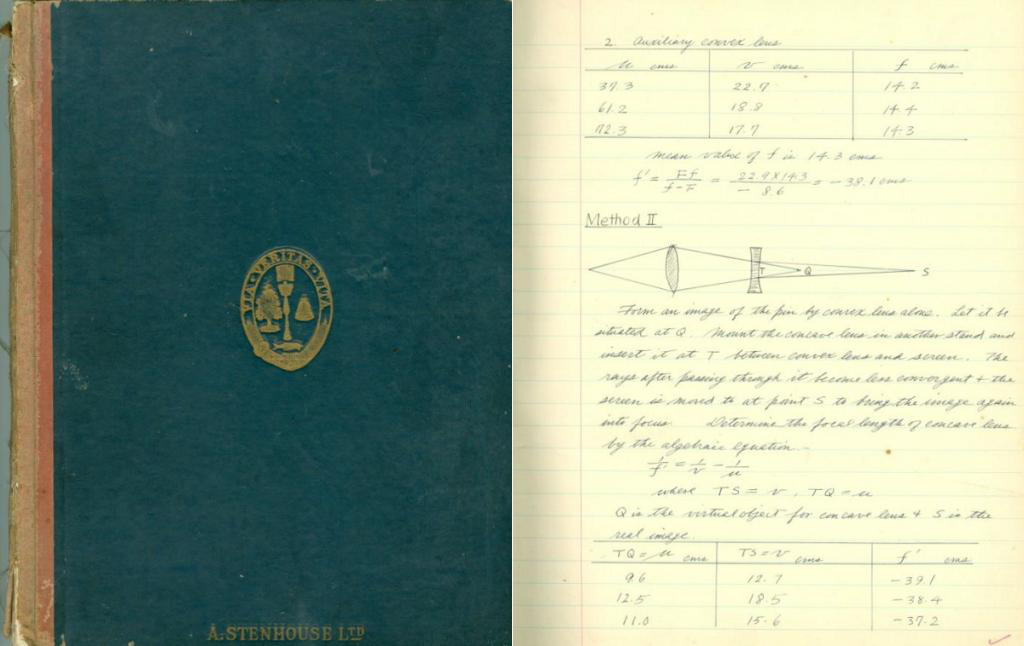 VIA · VERITAS · VITA
A. STENHOUSE LTD
2. Auxiliary convex lens
u cms v cms f cms
37.3 22.7 14.2
61.2 18.8 14.4
72.3 17.7 14.3
mean value of f is 14.3 cms
f' = Ff / f-F = 22.9 X 14.3 / - 8.6 = - 38.1 cms
Method II
T Q S
Form an image of the pin by convex lens alone. Let it be
situated at Q. Mount the concave lens in another stand and
insert it at T between convex lens and screen. The
rays after passing through it become less convergent + the
screen is moved to at point S to bring the image again
into focus. Determine the focal length of concave lens
by the algebraic equation -
1/f = 1/v - 1/u
where TS = v, TQ = u
Q is the virtual object for concave lens + S is the
real image.
TQ = u cms TS = v cms f' cms
9.6 12.7 - 39.1
12.5 18.5 - 38.4
11.0 15.6 - 37.2